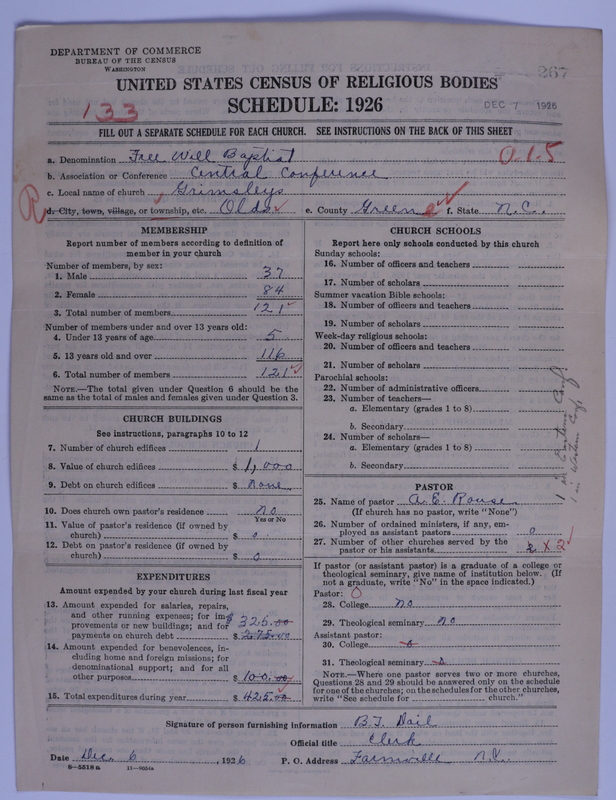 DEPARTMENT OF COMMERCE
BUREAU OF THE CENSUS
WASHINGTON
267
UNITED STATES CENSUS OF RELIGIOUS BODIES
SCHEDULE: 1926
133
DEC 7 1926
FILL OUT A SEPARATE SCHEDULE FOR EACH CHURCH. SEE INSTRUCTIONS ON THE BACK OF THIS SHEET
a. Denomination Free Will Baptist
0-1-5
b. Association or Conference Central Conference
c. Local name of church Grimsleys
R
d. City, town, village, or township, etc. Olds e. County Greene f. State N.C.
MEMBERSHIP
Report number of members according to definition of member in your church
Number of members, by sex:
1. Male 37
2. Female 84
3. Total number of members 121
Number of members under and over 13 years old:
4. Under 13 years of age 5
5. 13 years old and over 116
6. Total number of members 121
NOTE.—The total given under Question 6 should be the
same as the total of males and females given under Question 3.
CHURCH BUILDINGS
See instructions, paragraphs 10 to 12
7. Number of church edifices 1
8. Value of church edifices $ 1,000
9. Debt on church edifices $ none
10. Does church own pastor's residence no
Yes or No
11. Value of pastor's residence (if owned by
church) $ 0
12. Debt on pastor's residence (if owned by
church) $ 0
EXPENDITURES
Amount expended by your church during last fiscal year
13. Amount expended for salaries, repairs,
and other running expenses; for im-
provements or new buildings; and for
payments on church debt $ 325.00
$ 275.00
14. Amount expended for benevolences, in-
cluding home and foreign missions; for
denominational support; and for all
other purposes $ 100.00
15. Total expenditures during year $ 425.00
CHURCH SCHOOLS
Report here only schools conducted by this church
Sunday schools:
16. Number of officers and teachers
17. Number of scholars
Summer vacation Bible schools:
18. Number of officers and teachers
19. Number of scholars
Week-day religious schools:
20. Number of officers and teachers
21. Number of scholars
Parochial schools:
22. Number of administrative officers
23. Number of teachers—
a. Elementary (grades 1 to 8)
b. Secondary
24. Number of scholars—
a. Elementary (grades 1 to 8)
b. Secondary
1 in Eastern Conf.
1 in Western Conf.
PASTOR
25. Name of pastor A. E. Rouse
(If church has no pastor, write "None")
26. Number of ordained ministers, if any, em-
ployed as assistant pastors 0
27. Number of other churches served by the
pastor or his assistants 2 X 2
If pastor (or assistant pastor) is a graduate of a college or
theological seminary, give name of institution below. (If
not a graduate, write "No" in the space indicated.)
Pastor: 0
28. College no
29. Theological seminary no
Assistant pastor:
30. College 0
31. Theological seminary 0
NOTE.—Where one pastor serves two or more churches,
Questions 28 and 29 should be answered only on the schedule
for one of the churches; on the schedules for the other churches,
write "See schedule for church."
Signature of person furnishing information B. T. Dail
Official title Clerk
Date Dec. 6, 1926 P. O. Address Farmville N.C.
6—5518a 11—9054a